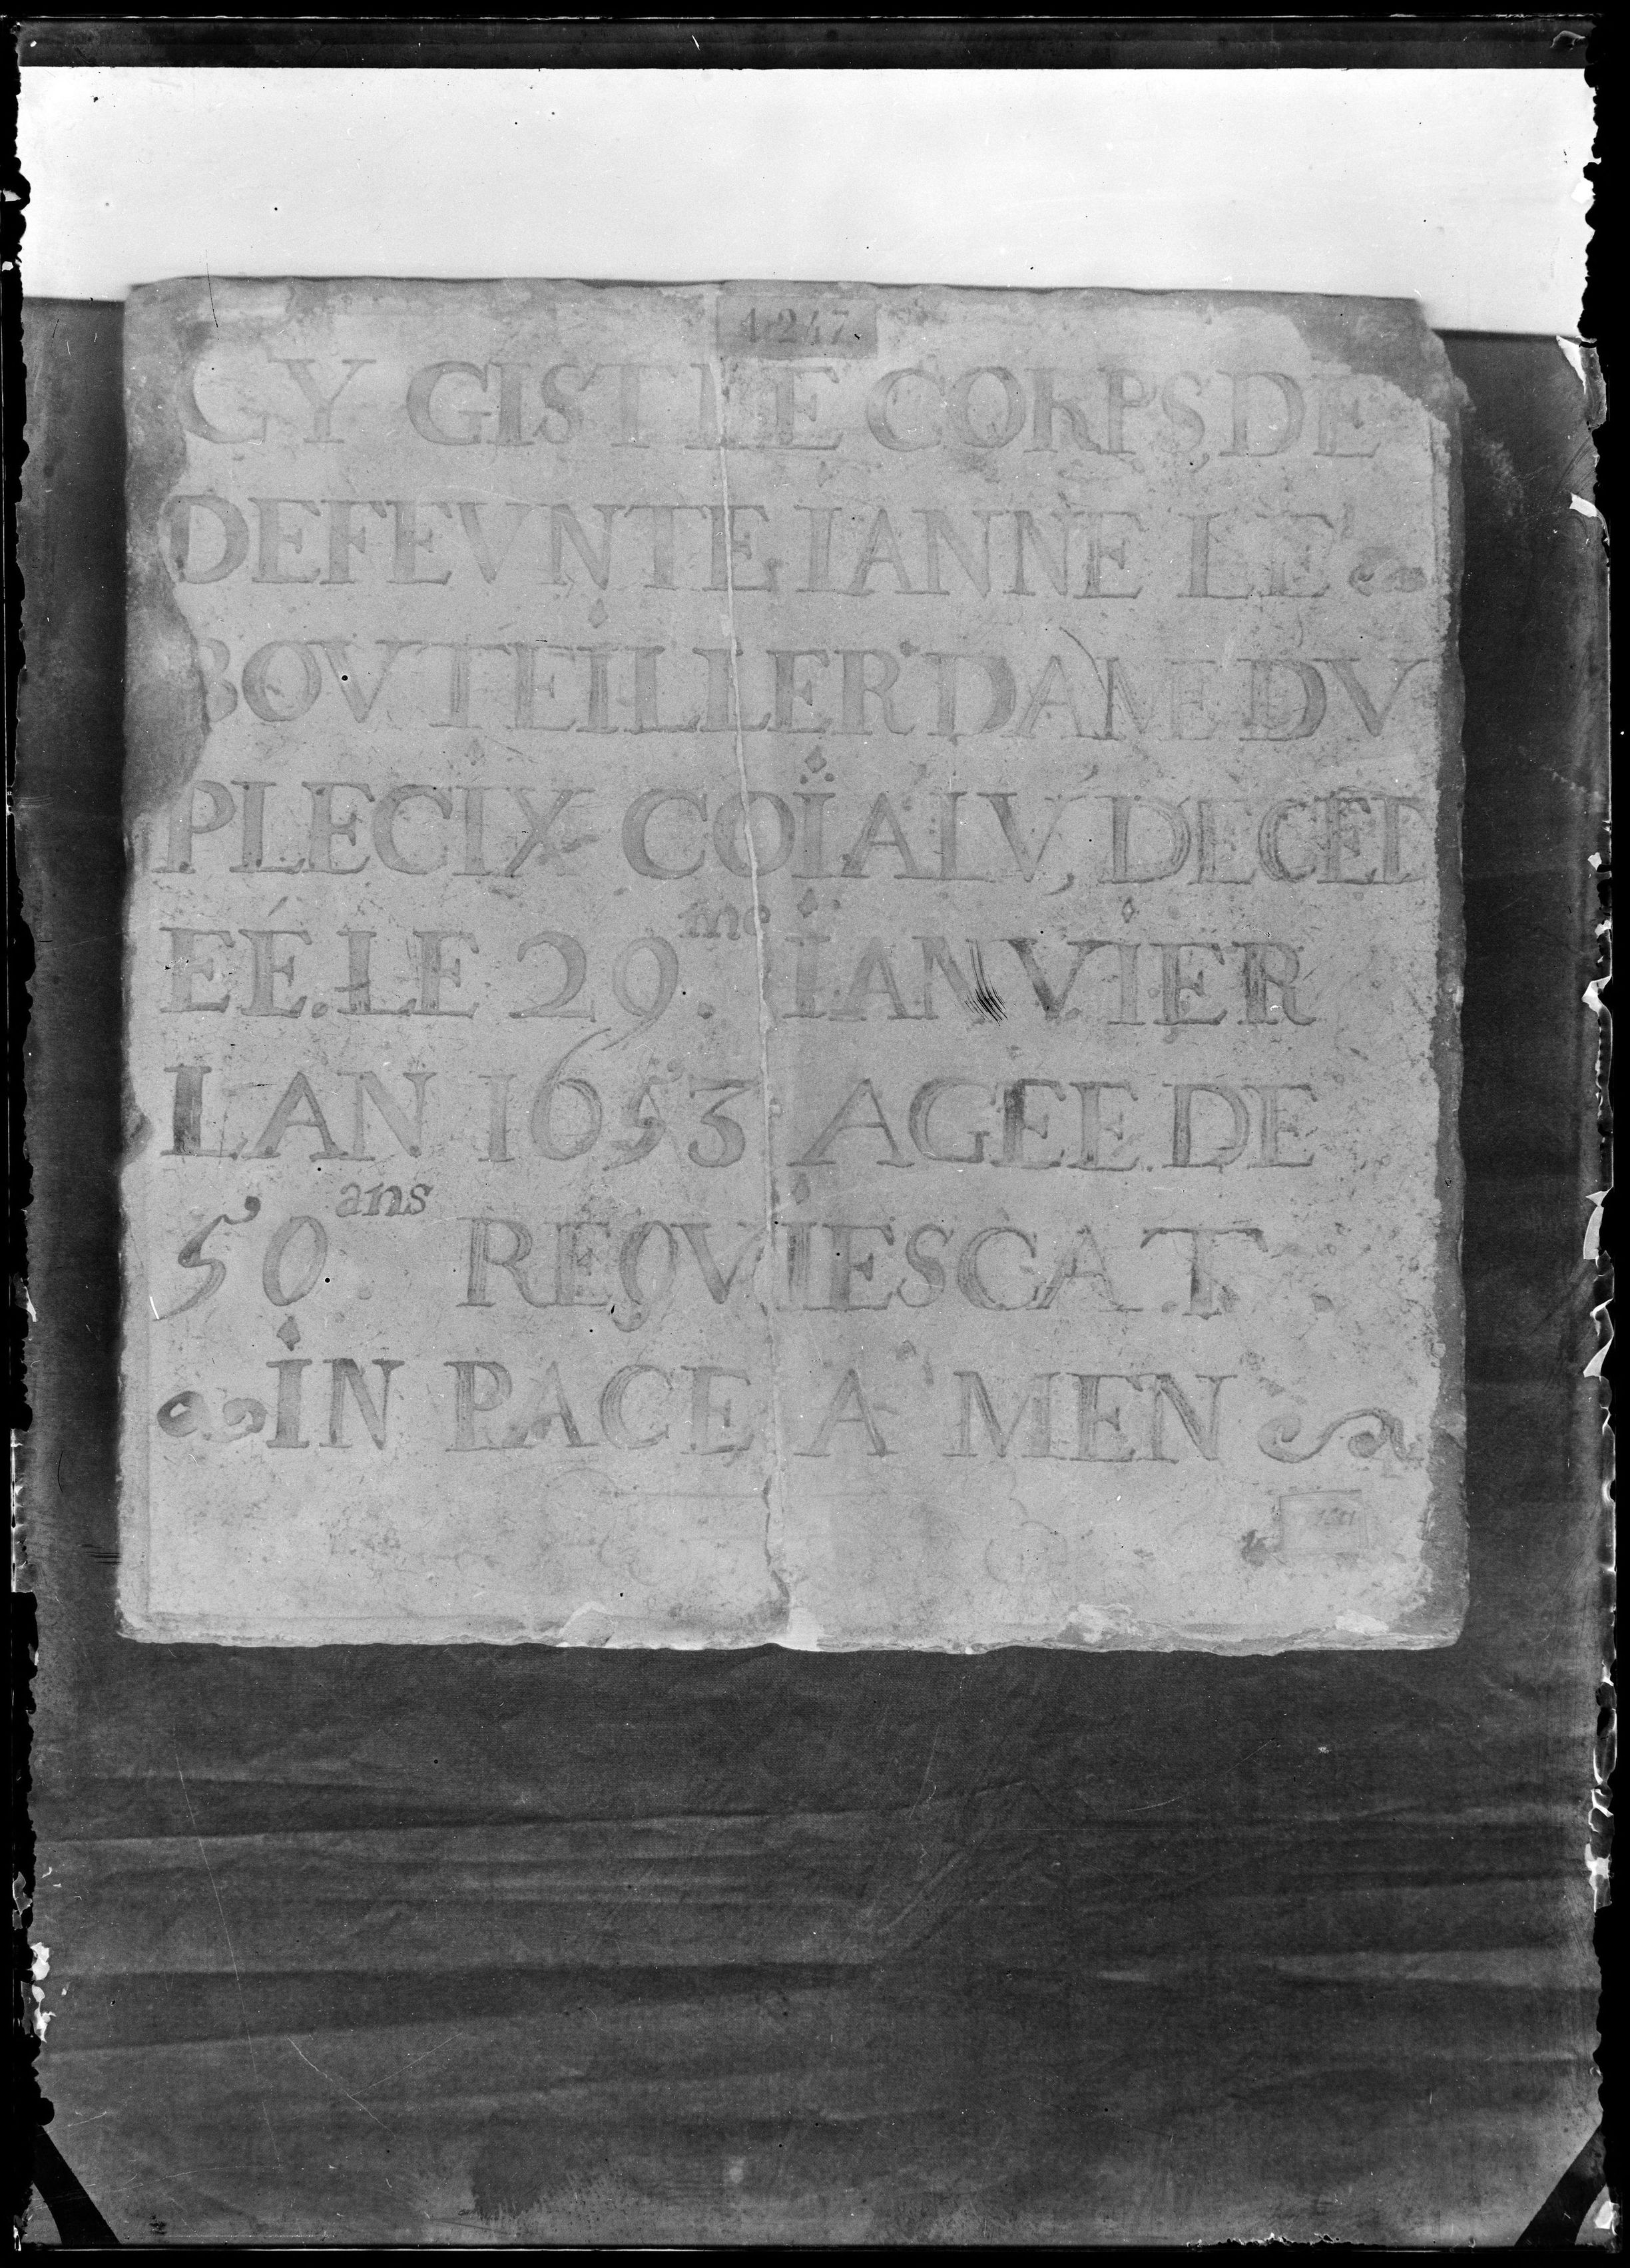 1247
CY GIST LE CORPS, DE
DEFEVNTE IANNE LE
BOVTEILLER DAME DV
PLECIX COÏALV, DECED
EÉ. LE 29.me IANVIER
LAN 1653 AGEE DE
50.ans REQVIESCAT
IN PACE A MEN